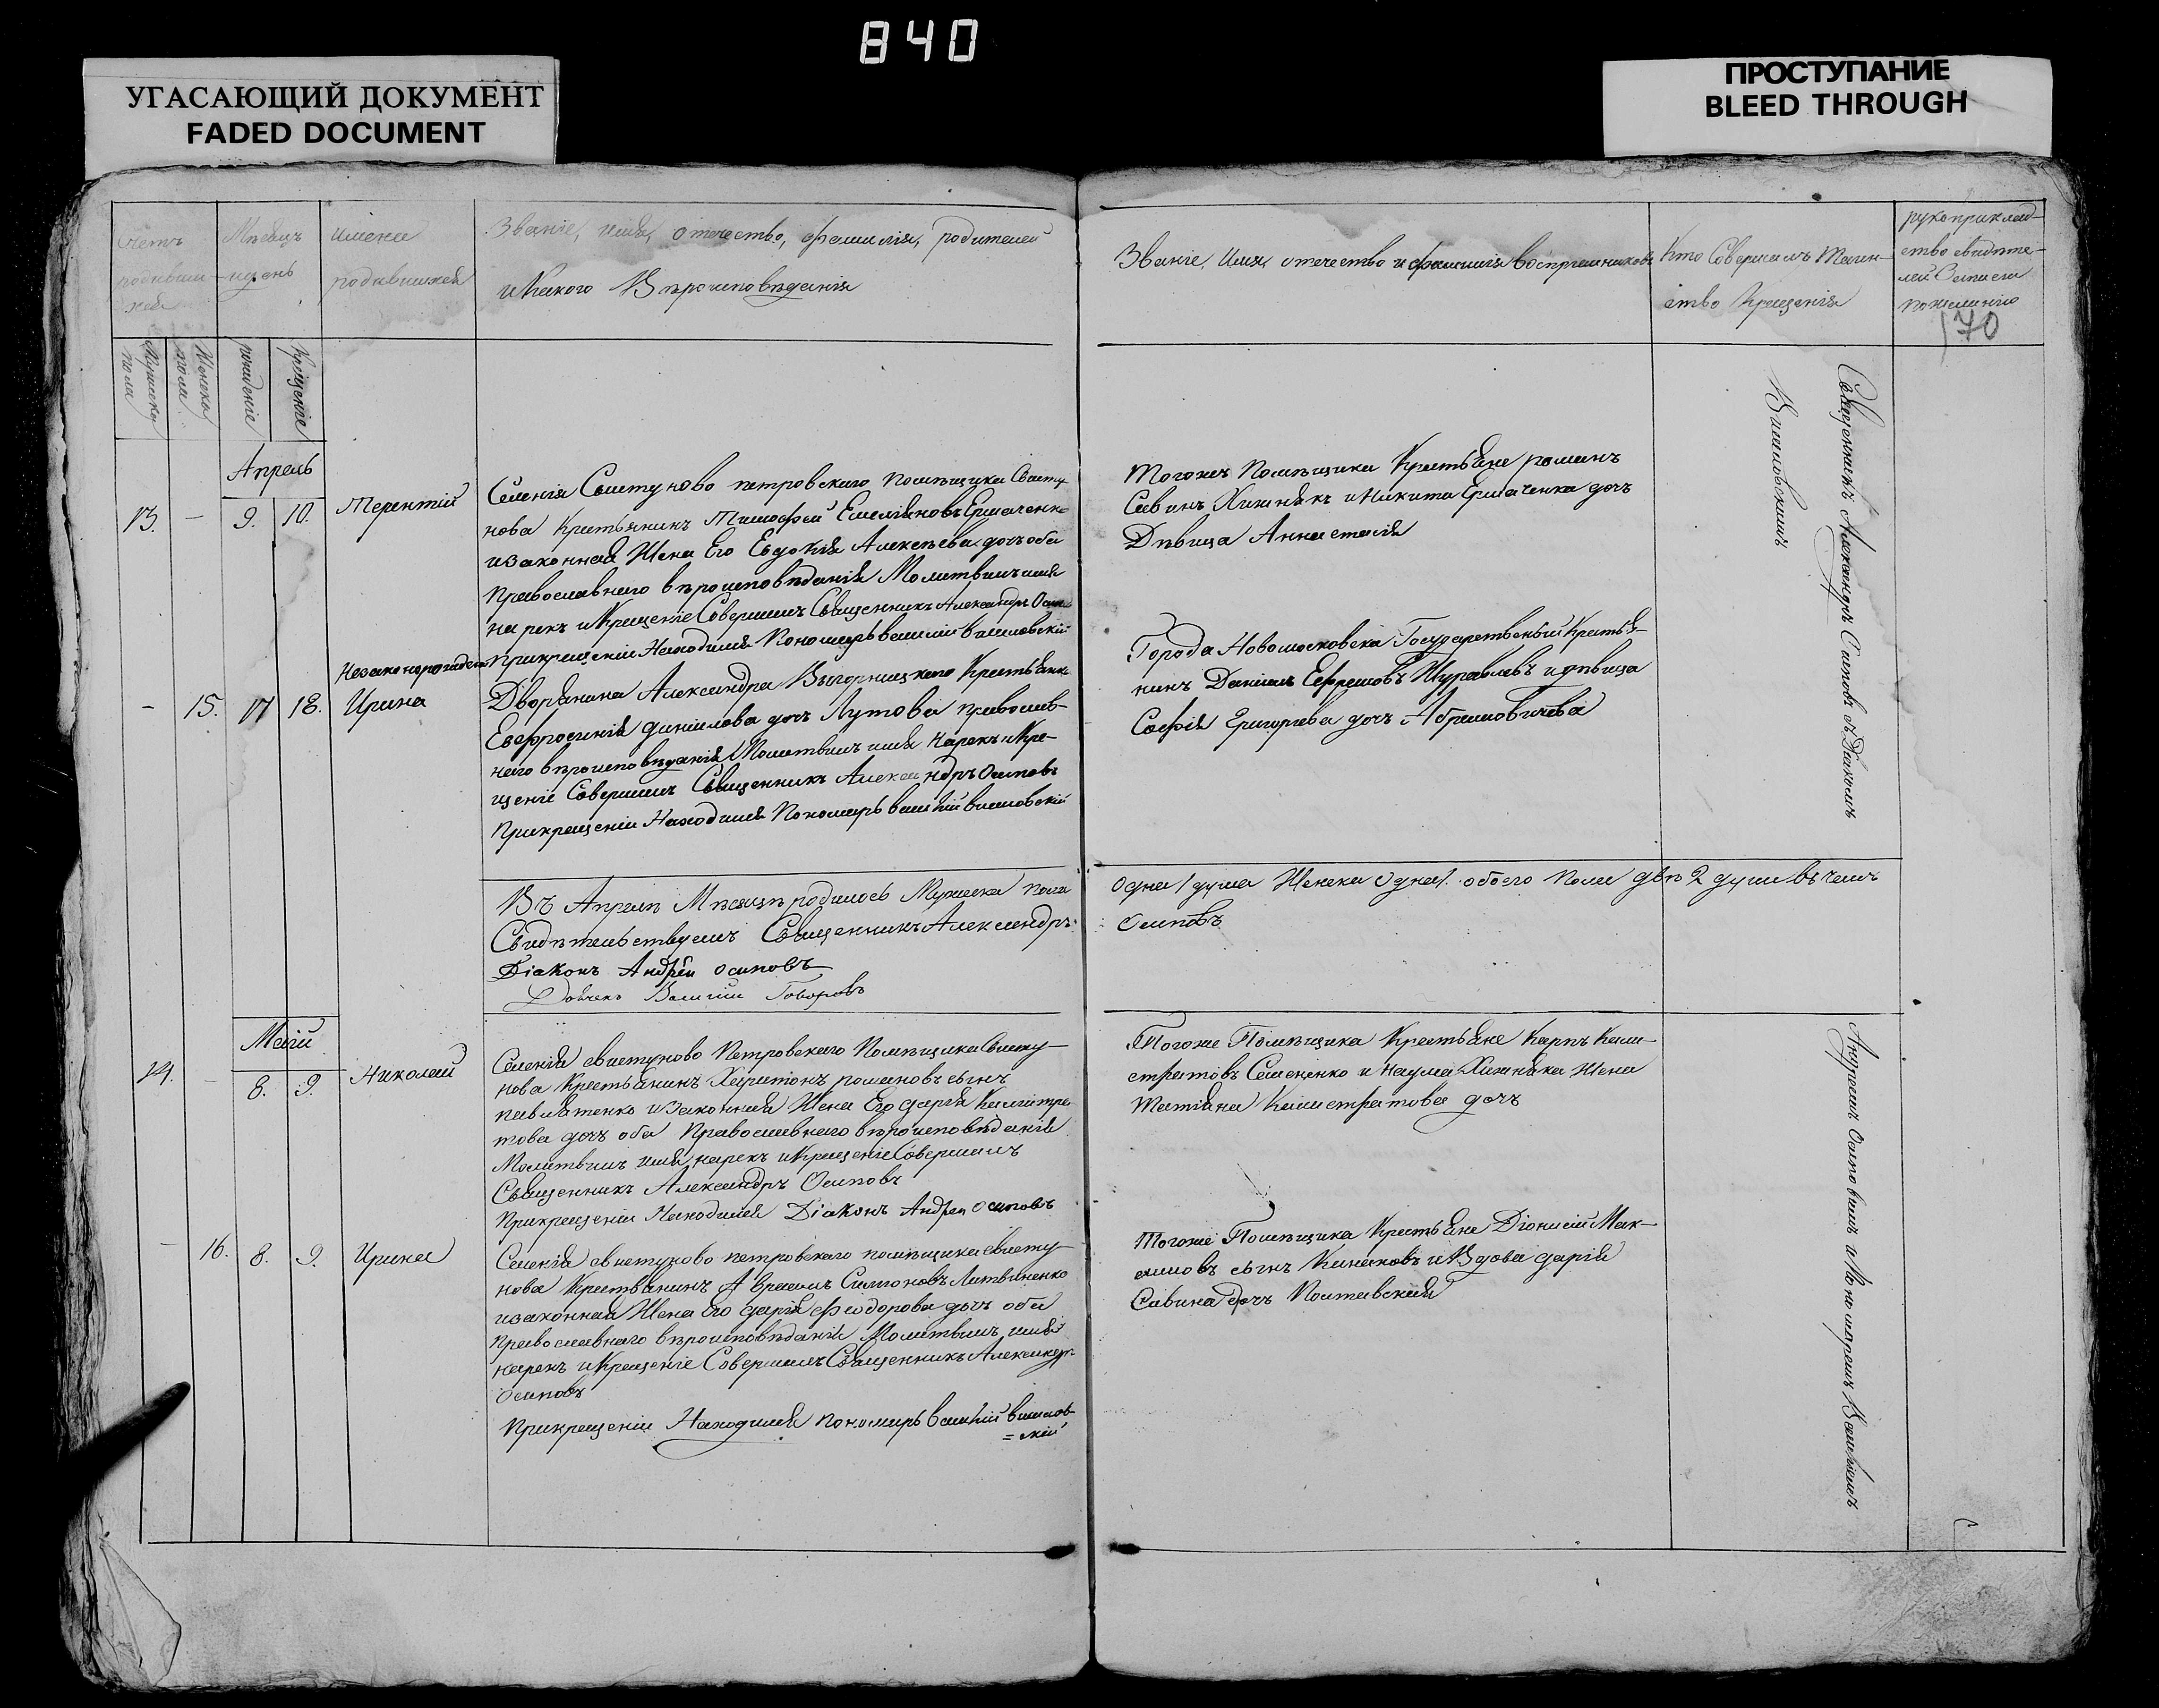 840
УГАСАЮЩИЙ ДОКУМЕНТ
FADED DOCUMENT
ПРОСТУПАНИЕ
BLEED THROUGH
Счетъ
родивши
хся
Мѣсяцъ
и день
Имена
родившихся
Званіе, имя, отечество, фамилія, родителей
и Какого Вѣроисповѣданія
Мужеска
пола
Женска
пола
рожденіе
Крещеніе
Апрель
13.
–
9.
10.
Терентій
Селенія Свистуново петровскаго помѣщика Свисту
нова Крестьянинъ Тимофей Емеліяновъ Ермаченко
и законная Жена Его Евдокія Алексѣева дочъ оба
Православнаго вѣроисповѣданія Молитвилъ имя
на рекъ и Крещеніе Совершилъ Священникъ Александръ Осип
При крещеніи Находился Пономарь василій василовскій
–
15.
17
18.
Незаконорожден
Ирина
Дворянина Александра Выгорницкаго Крестьянка
Евфросинія данилова дочъ Лутова православ-
наго вѣроисповѣданія Молитвилъ имя нарекъ и Кре-
щеніе Совершилъ Священникъ Александръ Осиповъ
При крещеніи Находился Пономарь василій василовскій
Въ Апрелѣ Мѣсяцѣ родилось Мужеска пола
Свидѣтельствуемъ Священникъ Александръ
Діаконъ Андрей осиповъ
Василій Говоровъ
Маій
14.
–
8.
9.
Николай
Селенія свистуново Петровскаго Помѣщика Свисту-
нова Крестьянинъ Харитонъ романовъ сынъ
павлятенко и законная Жена Его дарія Калистра
това дочъ оба Православнаго вѣроисповѣданія
Молитвилъ имя нарекъ и Крещеніе Совершилъ
Священникъ Александръ Осиповъ
При крещеніи Находился Діаконъ Андрей осиповъ
–
16.
8.
9.
Ирина
Селенія свистуново петровскаго помѣщика свисту
нова Крестьянинъ Авраамъ Симоновъ Литвиненко
и законная Жена Его дарія феодорова дочъ оба
Православнаго вѣроисповѣданія Молитвилъ имя
нарекъ и Крещеніе Совершилъ Священникъ Александръ
Осиповъ
При крещеніи Находился пономарь василій василов-
= скій
Званіе, Имя, отечество и фамилія воспріемниковъ
Кто Совершилъ Таин-
ство Крещенія
рукоприклад-
ство свидѣте-
лей Записи
по желанію
170
Тогожъ Помѣщика Крестьяне романъ
Савинъ Хижнякъ и Никита Ермаченка дочъ
Дѣвица Анастасія
Города Новомосковска Государственый Крестья-
нинъ Даніилъ Ефремовъ Журавлевъ и дѣвица
Софія Григорьева дочъ Абрамовичева
Священникъ Александръ Осиповъ съ Дьякомъ
Василовскимъ
одна 1 душа Женска одна 1. обоего Пола двѣ 2 души въ чемъ
Осиповъ
Тогоже Помѣщика Крестьяне Карпъ Кали-
стратовъ Семененко и наума Хижняка Жена
Татіяна Калистратова дочъ
Тогоже Помѣщика Крестьяне Діонисій Мак-
симовъ сынъ и Вдова дарія
Савина дочъ Полтавская
Андреемъ Осиповимъ и Пономаремъ Василіемъ